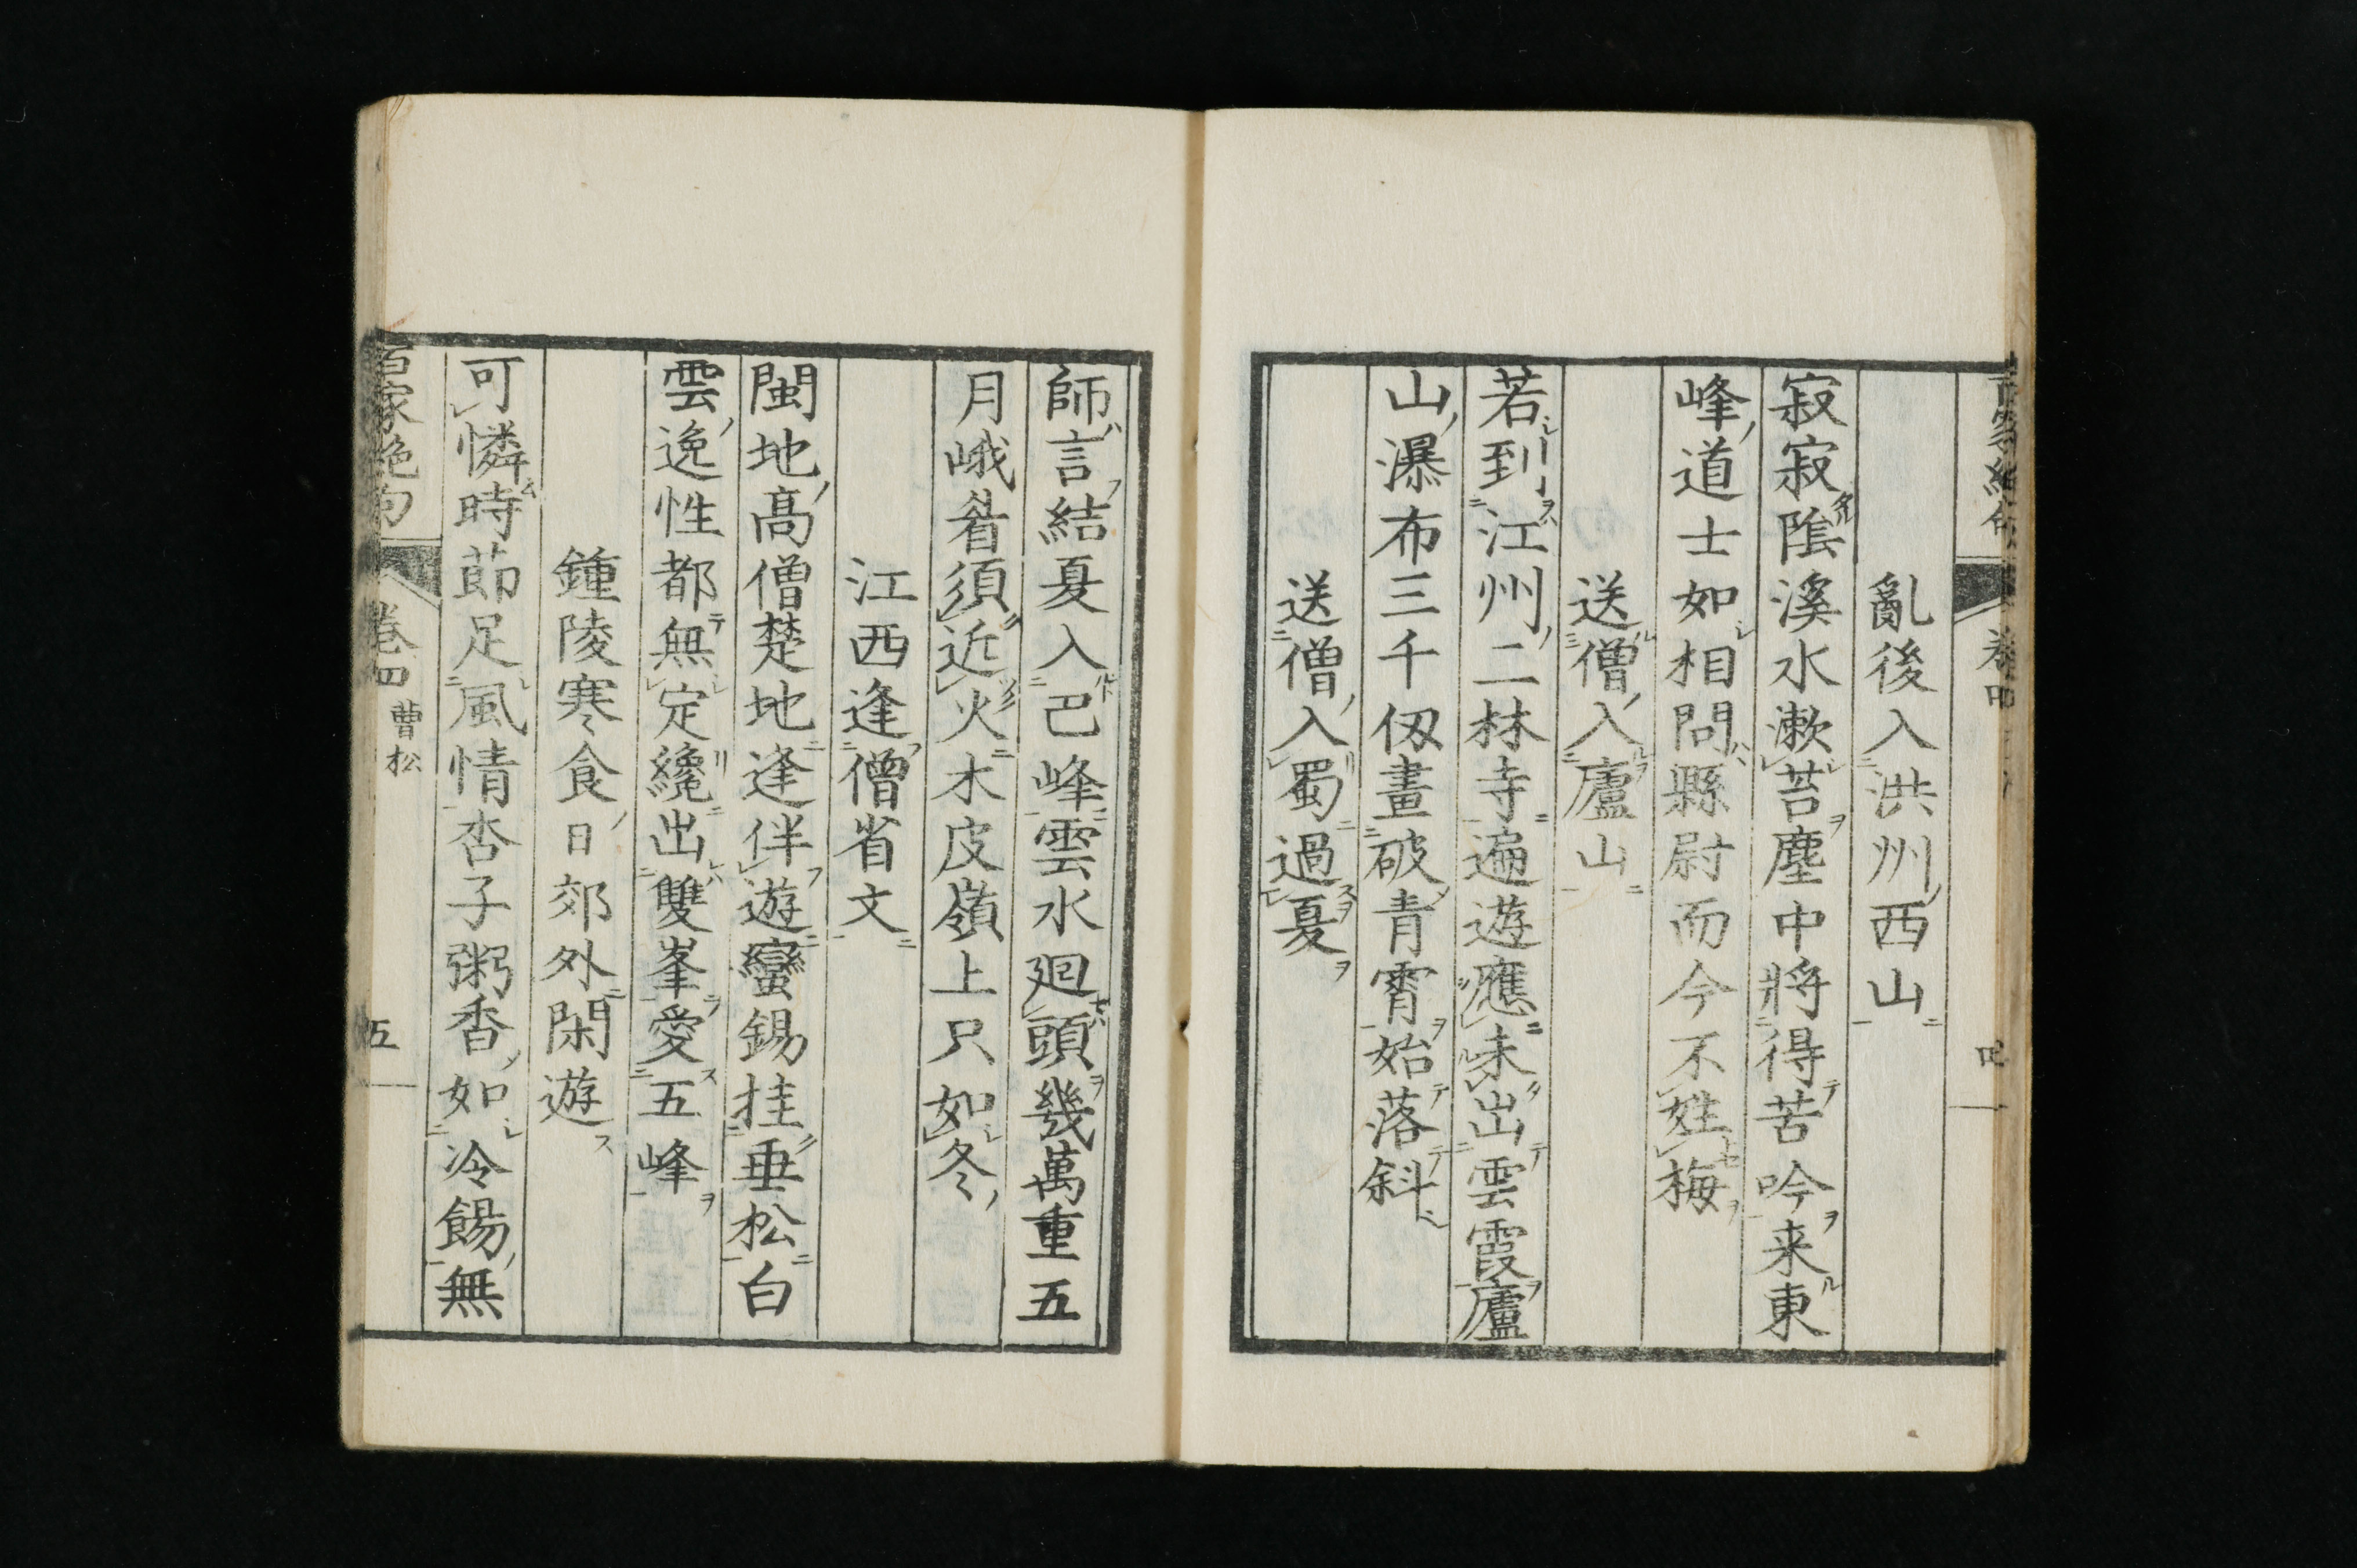 亂後入洪州西山
寂寂隂溪水漱苔塵中將得苦吟来東
峰道士如相問縣尉而今不姓梅
送僧入廬山
若到江州二林寺遍遊應未出雲霞廬
山瀑布三千仞畫破青霄始落斜
送僧入蜀過夏
師言結夏入巴峰雲水廻頭幾萬重五
月峨眉須近火木皮嶺上只如冬
江西逢僧省文
閩地高僧楚地逢伴遊蠻錫挂垂松白
雲逸性都無定纔出雙峯愛五峰
鍾陵寒食日郊外閑遊
可憐時莭足風情杏子粥香如冷餳無
百家絶句 卷四 曹松 五